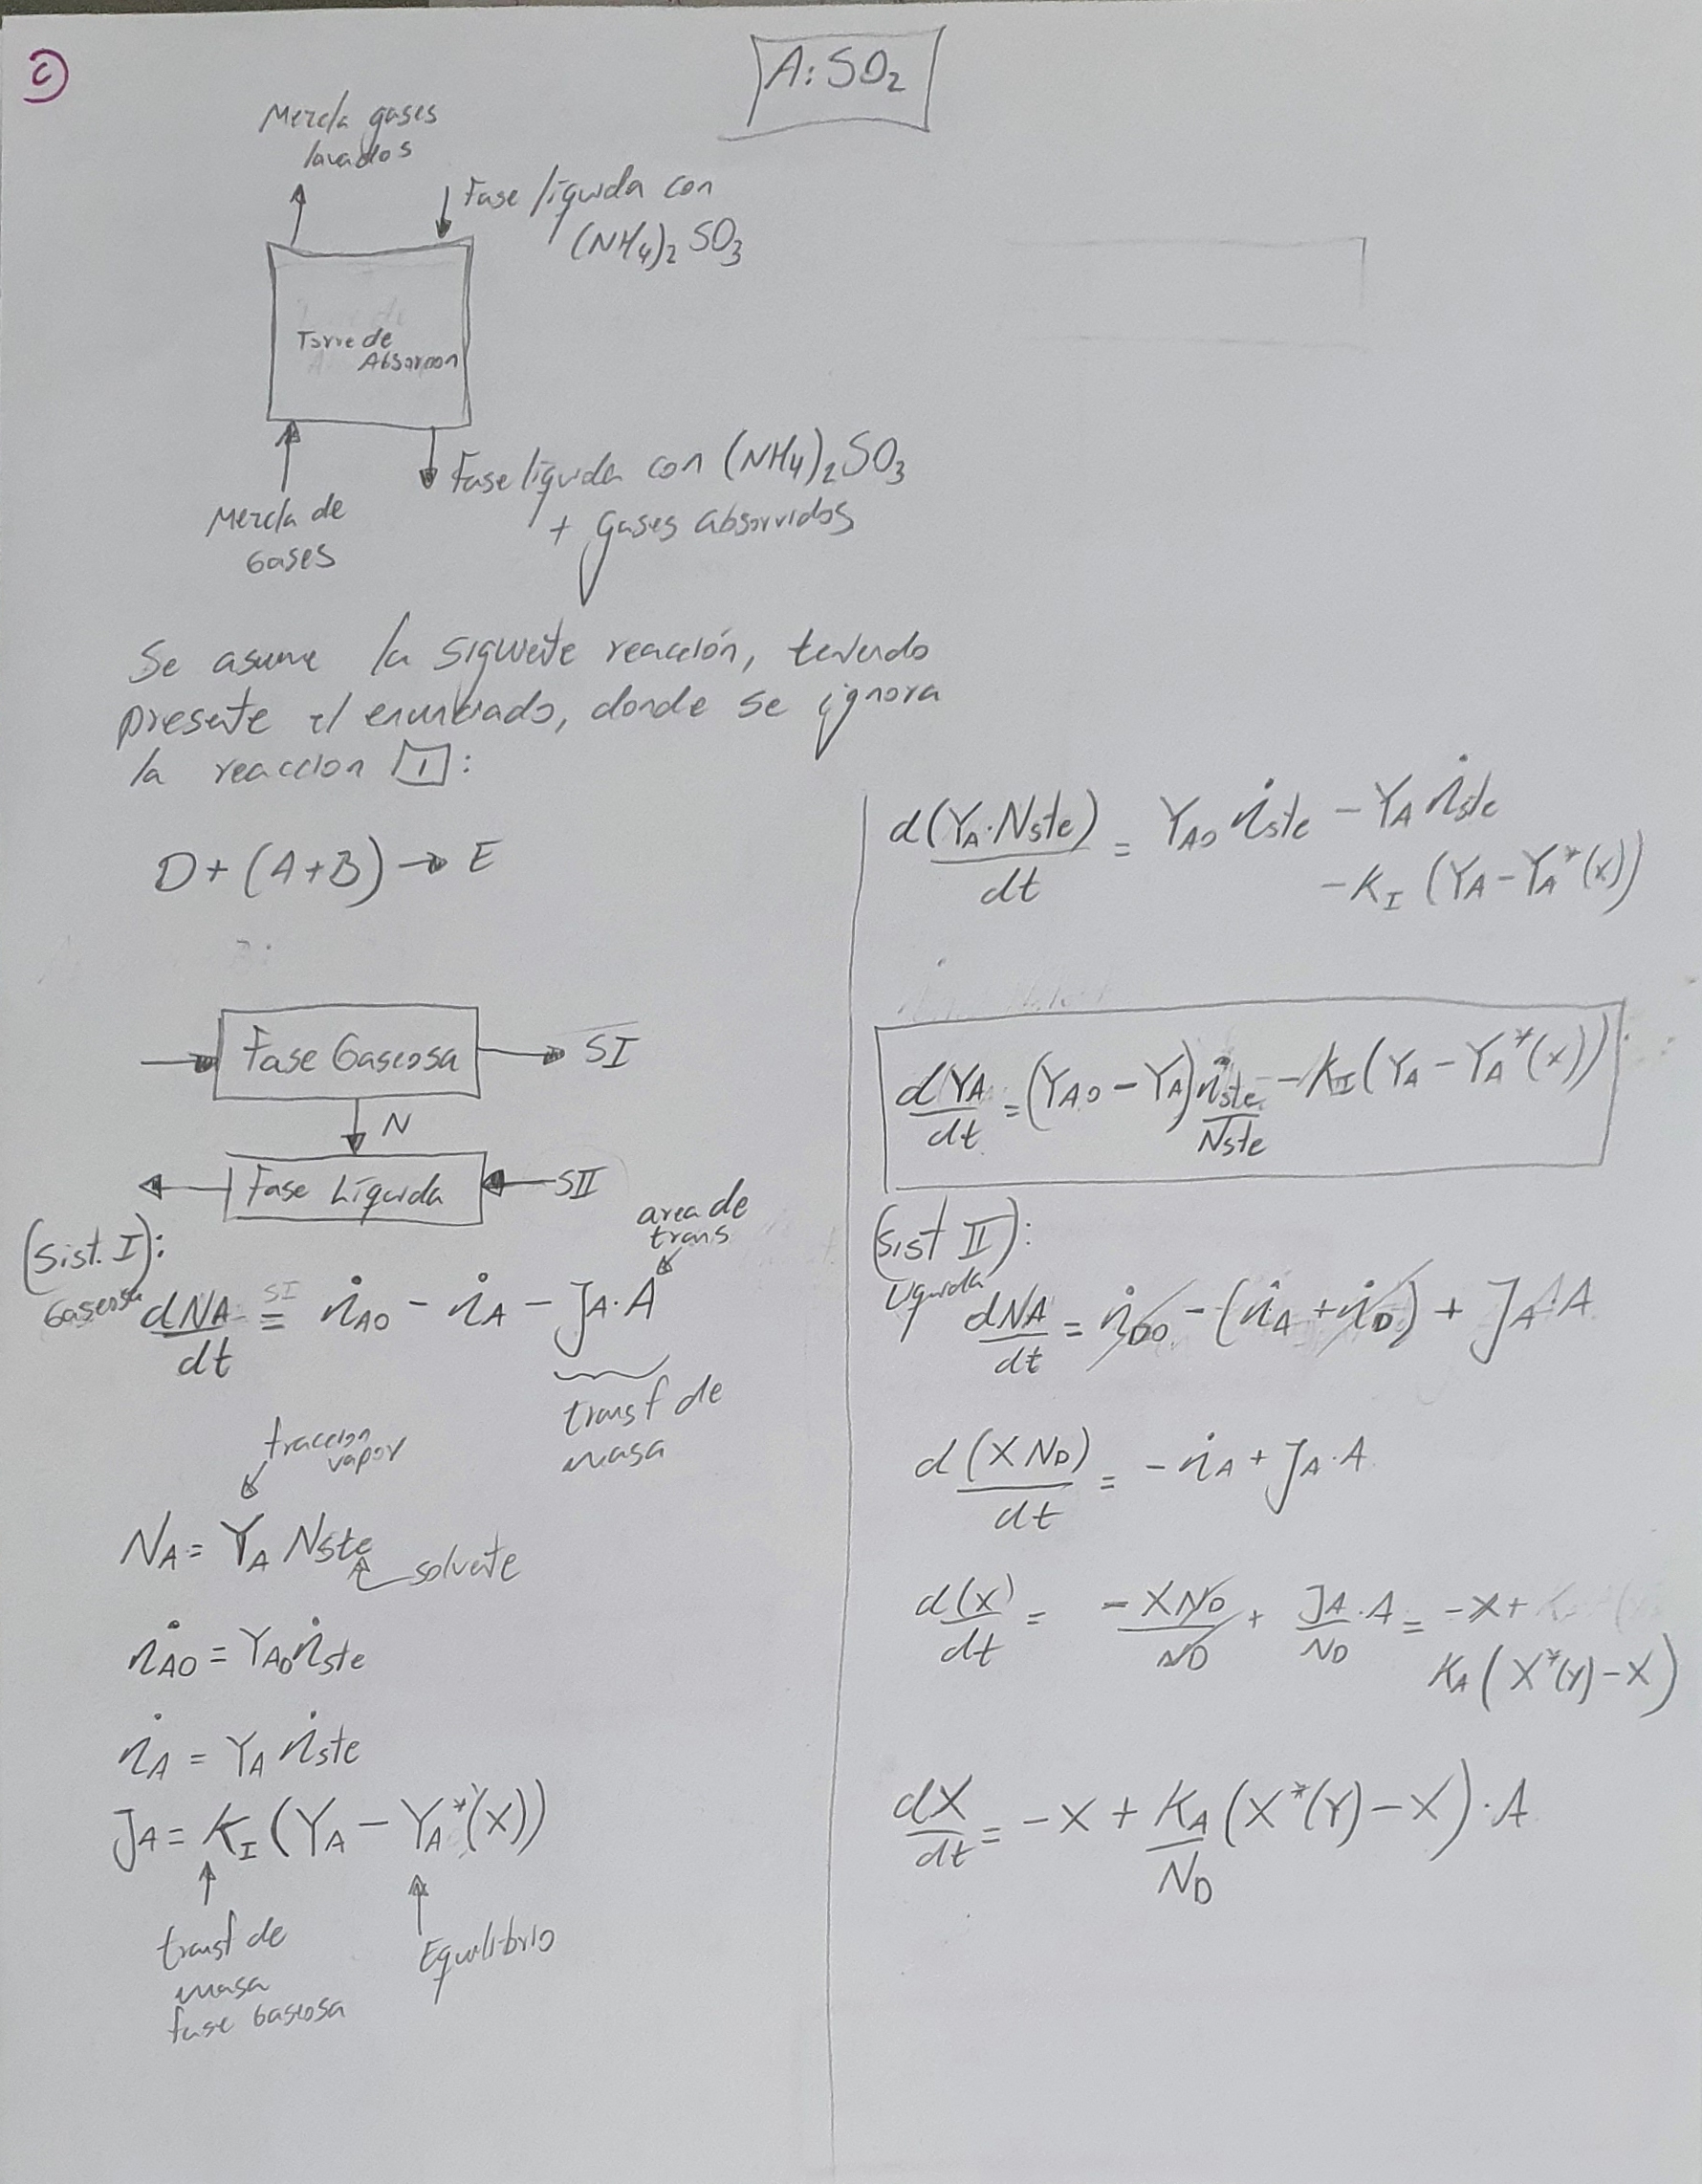 c)
A: SO₂
Mezcla gases
lavados
Fase líquida con
(NH₄)₂ SO₃
Torre de
Absorcion
Fase líquida con (NH₄)₂SO₃
+ Gases absorvidos
Mezcla de
Gases
Se asume la siguiente reacción, teniendo
presente el enunciado, donde se ignora
la reaccion 1:
D + (A+B) → E
Fase Gaseosa → SI
N
Fase Líquida ← SII
(Sist. I):
Gaseosa
area de
trans
dN_A/dt =^{SI} ṅ_A0 - ṅ_A - J_A·A
transf de
masa
fraccion
vapor
N_A = Y_A N_ste
solvente
ṅ_A0 = Y_A0 ṅ_ste
ṅ_A = Y_A ṅ_ste
J_A = K_I (Y_A - Y_A*(x))
transf de
masa
fase Gaseosa
Equilibrio
d(Y_A·N_ste)/dt = Y_A0 ṅ_ste - Y_A ṅ_ste
- K_I (Y_A - Y_A*(x))
dY_A/dt = (Y_A0 - Y_A) ṅ_ste/N_ste - K_I (Y_A - Y_A*(x))
(Sist II):
Líquida
dN_A/dt = ṅ_D0 - (ṅ_A + ṅ_D) + J_A·A
d(X N_D)/dt = - ṅ_A + J_A·A
d(x)/dt = - X N_D/N_D + J_A·A/N_D = -X +
K_A (X*(Y) - X)
dX/dt = -X + K_A/N_D (X*(Y) - X)·A